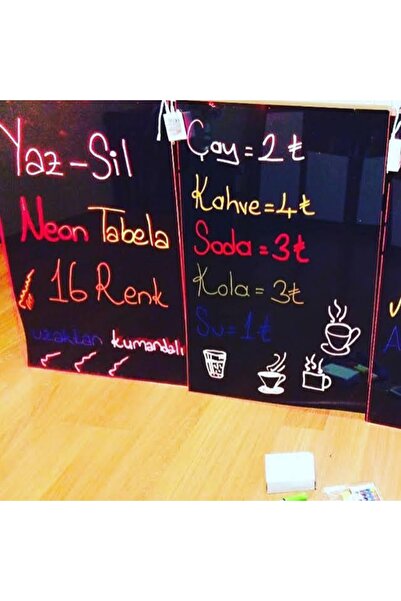 Yaz-Sil
Neon Tabela
16 Renk
uzaktan kumandalı
Çay = 2 ₺
Kahve = 4 ₺
Soda = 3 ₺
Kola = 3 ₺
Su = 1 ₺